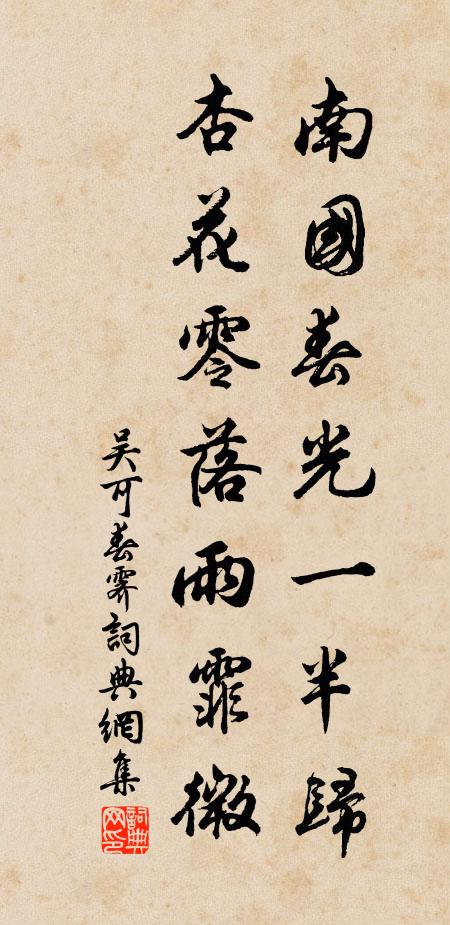 南國春光一半歸
杏花零落雨霏微
吳可春霽詞典網集
詞典网印